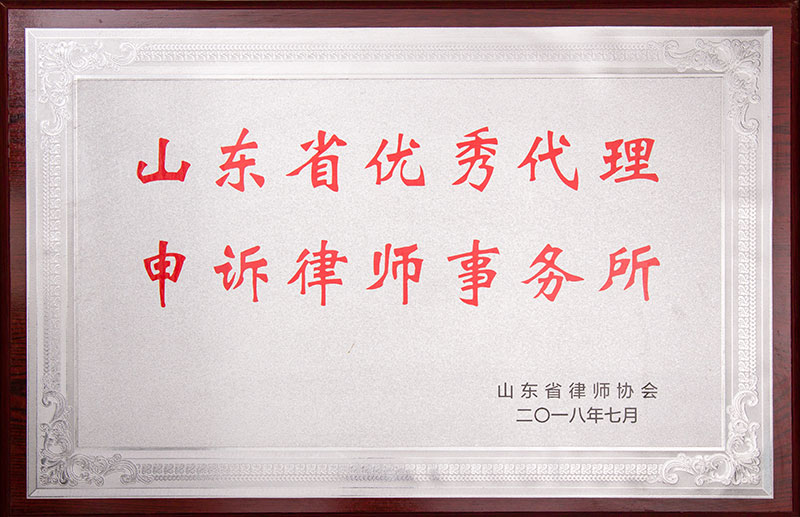 山东省优秀代理
申诉律师事务所
山东省律师协会
二〇一八年七月